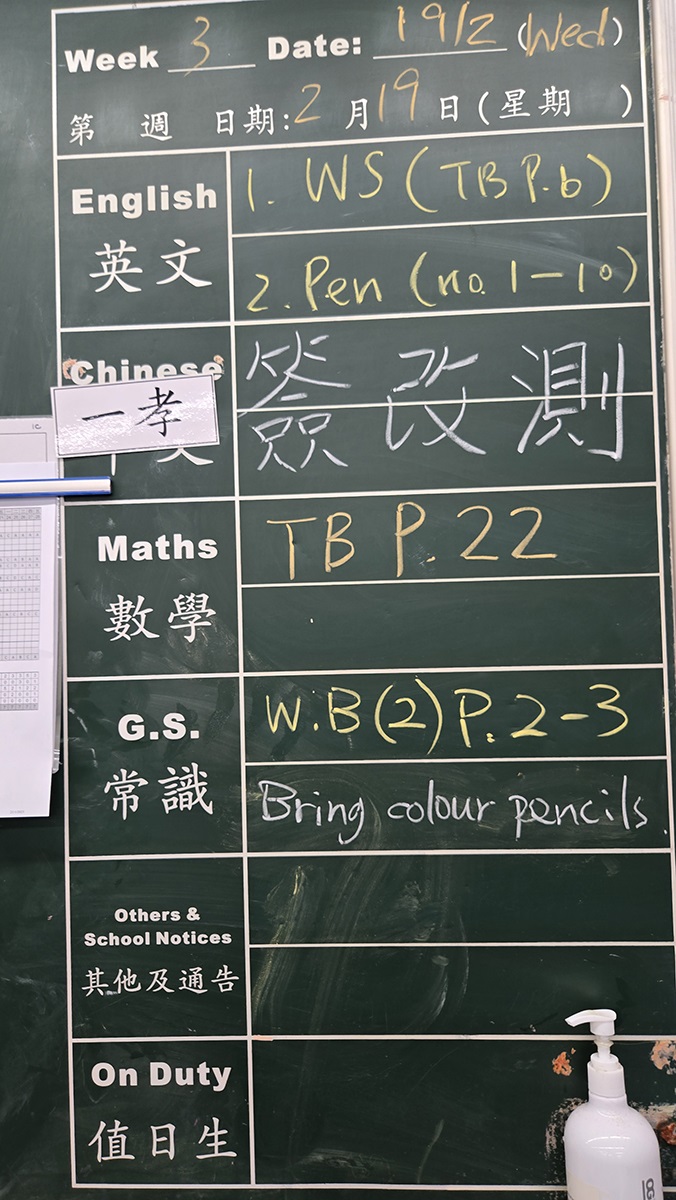 Week 3 Date: 19/2 (Wed)
第 週 日期:2月19日(星期 )
English
英文
1. WS (TB P.6)
2. Pen (no. 1-10)
Chinese
一孝
簽 改 測
Maths
數學
TB P. 22
G.S.
常識
W.B (2) P. 2-3
Bring colour pencils.
Others &
School Notices
其他及通告
On Duty
值日生